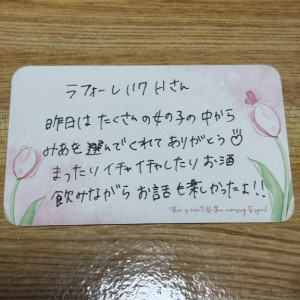 ラフォーレ117 Hさん
昨日は たくさんの女の子の中から
みあを選んでくれてありがとう♡
まったりイチャイチャしたり お酒
飲みながら お話も楽しかったよ!!
There is more to life than increasing its speed